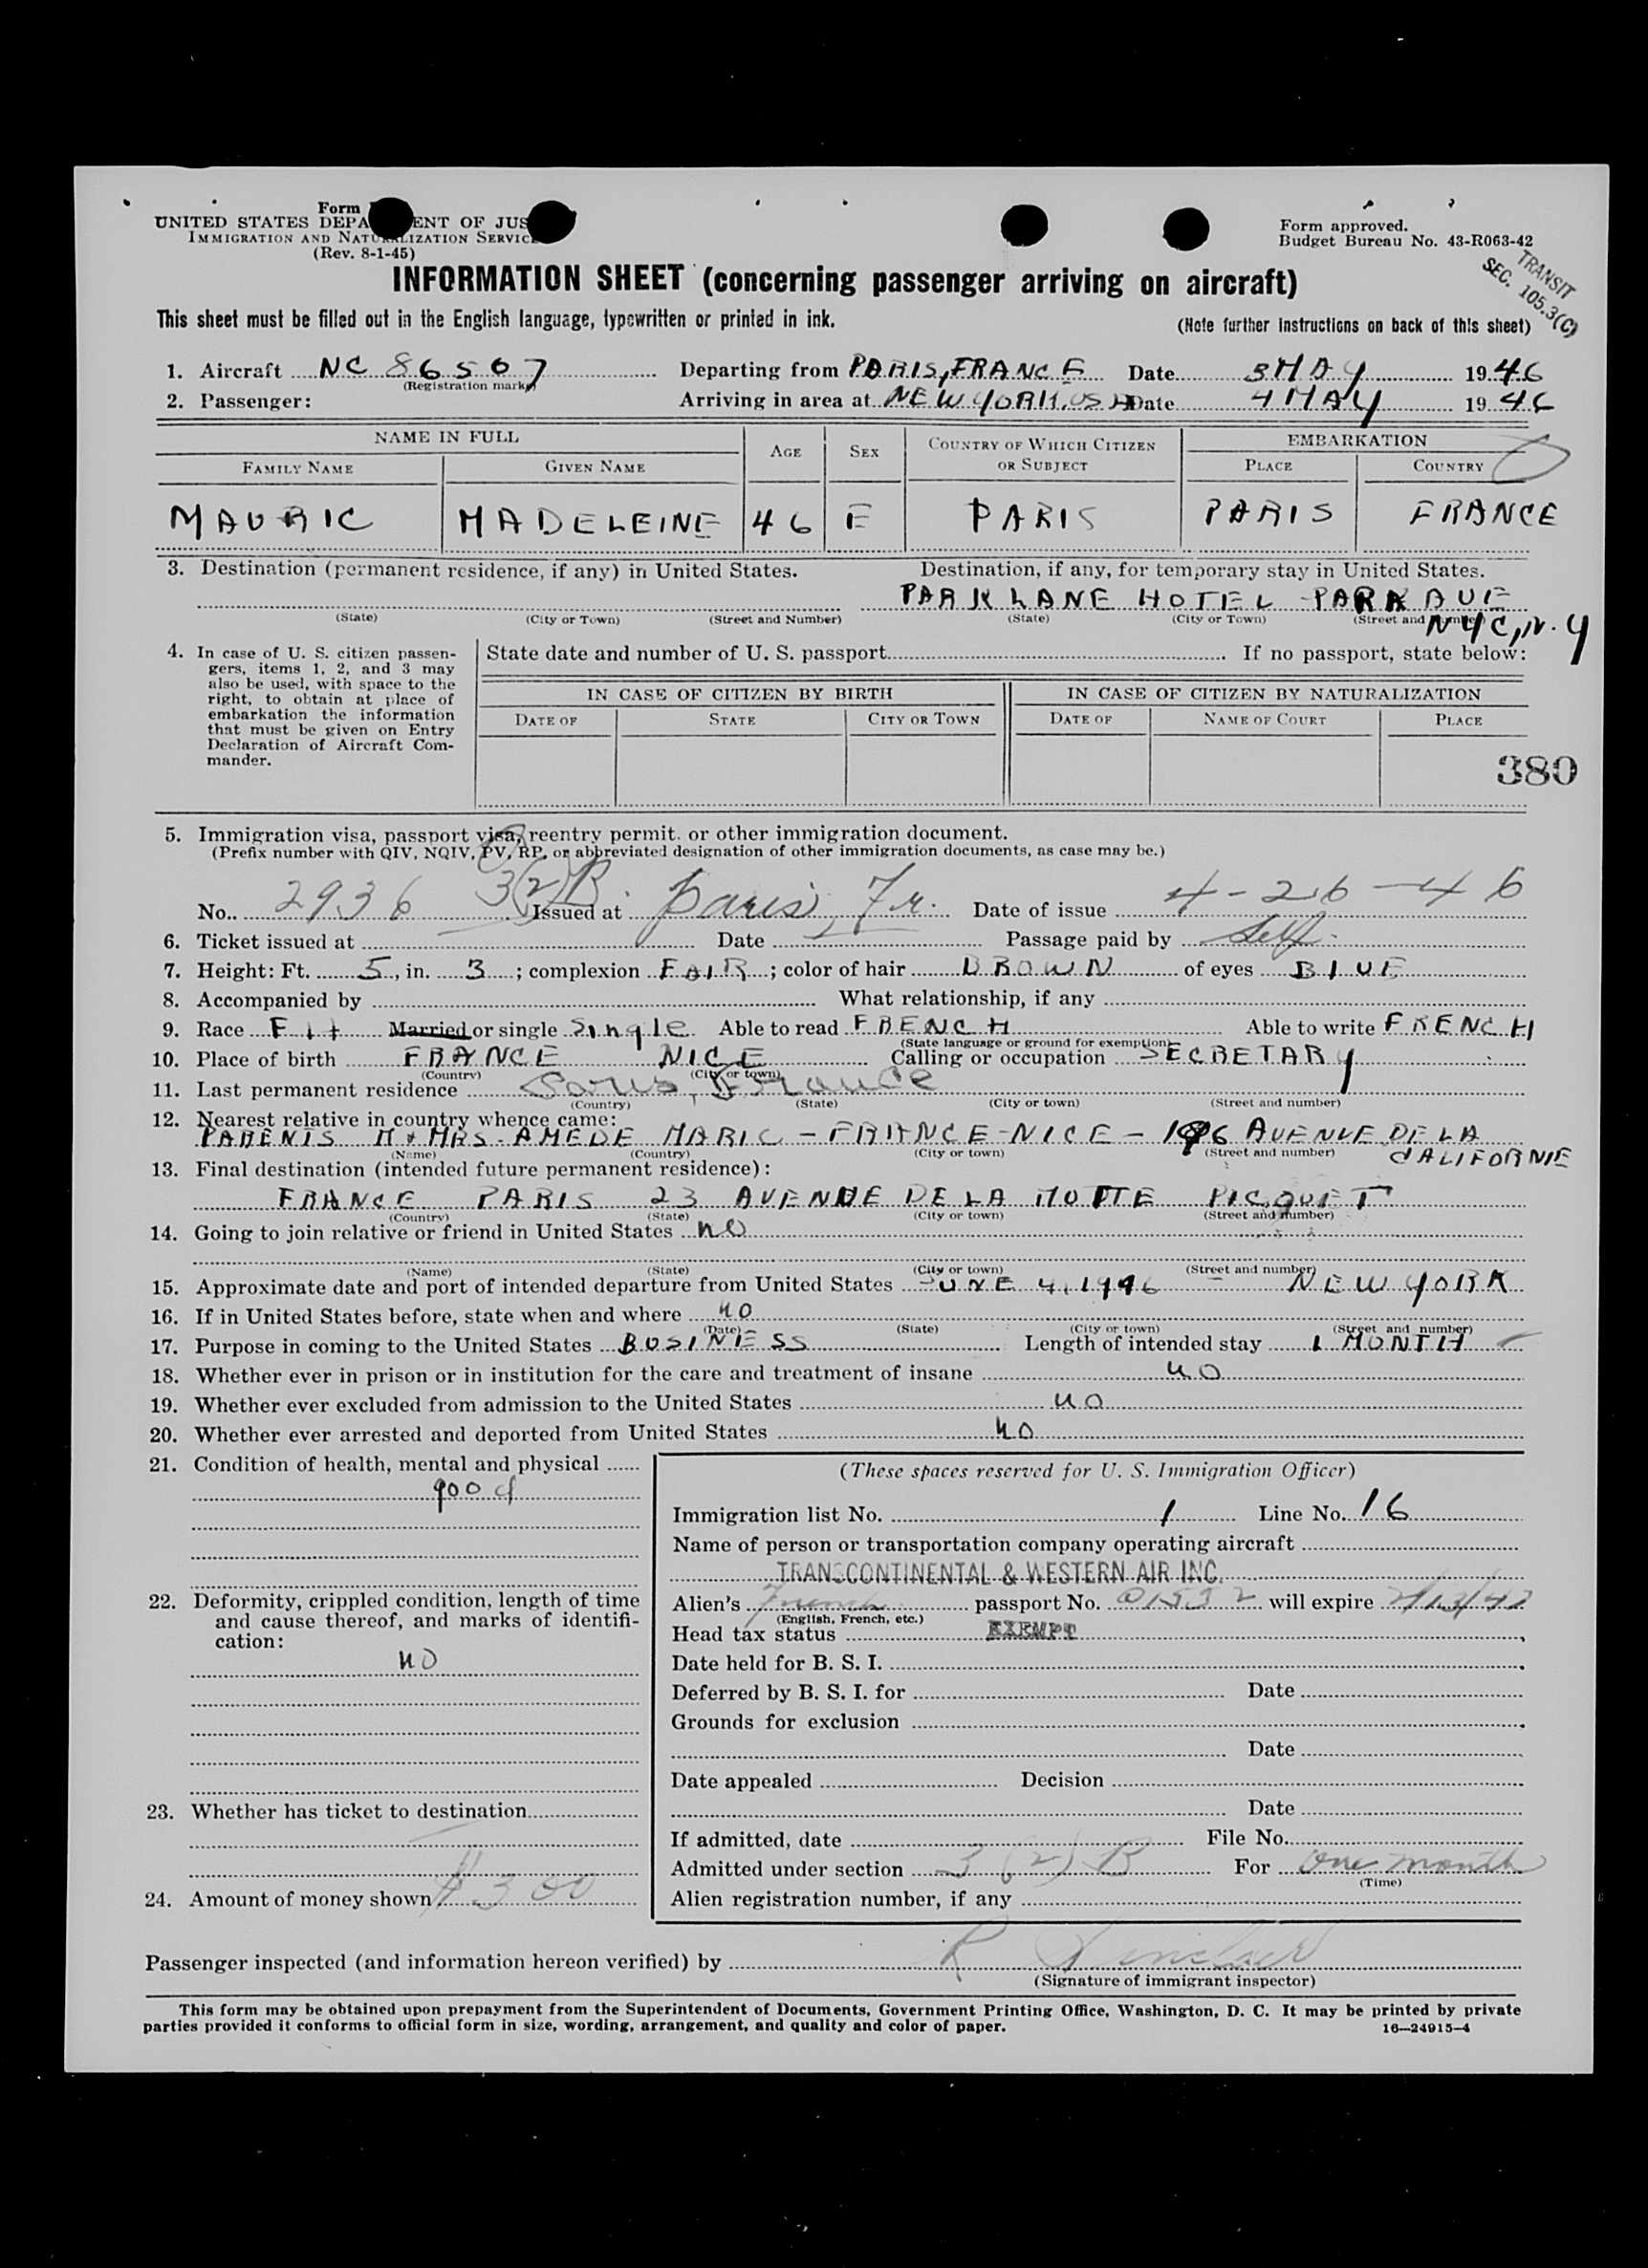 Form
UNITED STATES DEPA ENT OF JUS
IMMIGRATION AND NATURALIZATION SERVICE
(Rev. 8-1-45)
Form approved.
Budget Bureau No. 43-R063-42
TRANSIT
SEC. 105.3(C)
INFORMATION SHEET (concerning passenger arriving on aircraft)
This sheet must be filled out in the English language, typewritten or printed in ink. (Note further instructions on back of this sheet)
1. Aircraft NC 86507 Departing from PARIS, FRANCE Date 3 MAY 1946
(Registration mark)
2. Passenger: Arriving in area at NEW YORK, USA Date 4 MAY 1946
NAME IN FULL AGE SEX COUNTRY OF WHICH CITIZEN OR SUBJECT EMBARKATION
FAMILY NAME GIVEN NAME PLACE COUNTRY
MAURIC MADELEINE 46 F PARIS PARIS FRANCE
3. Destination (permanent residence, if any) in United States. Destination, if any, for temporary stay in United States.
PARK LANE HOTEL - PARK AVE
(State) (City or Town) (Street and Number) (State) (City or Town) (Street and Number)
NYC, N.Y
4. In case of U. S. citizen passengers, items 1, 2, and 3 may
also be used, with space to the
right, to obtain at place of
embarkation the information
that must be given on Entry
Declaration of Aircraft Commander.
State date and number of U. S. passport If no passport, state below:
IN CASE OF CITIZEN BY BIRTH IN CASE OF CITIZEN BY NATURALIZATION
DATE OF STATE CITY OR TOWN DATE OF NAME OF COURT PLACE
380
5. Immigration visa, passport visa, reentry permit. or other immigration document.
(Prefix number with QIV, NQIV, PV, RP, or abbreviated designation of other immigration documents, as case may be.)
No. 2936 3(2)B Issued at Paris, Fr. Date of issue 4-26-46
6. Ticket issued at Date Passage paid by Self
7. Height: Ft. 5, in. 3; complexion FAIR; color of hair BROWN of eyes BLUE
8. Accompanied by What relationship, if any
9. Race Married or single Single Able to read FRENCH Able to write FRENCH
(State language or ground for exemption)
10. Place of birth FRANCE NICE Calling or occupation SECRETARY
(Country) (City or town)
11. Last permanent residence Paris, France
(Country) (State) (City or town) (Street and number)
12. Nearest relative in country whence came:
PARENTS M & MRS. AMEDE MARIC - FRANCE - NICE - 196 AVENUE DE LA
CALIFORNIE
(Name) (Country) (City or town) (Street and number)
13. Final destination (intended future permanent residence):
FRANCE PARIS 23 AVENUE DE LA MOTTE PICQUET
(Country) (State) (City or town) (Street and number)
14. Going to join relative or friend in United States no
(Name) (State) (City or town) (Street and number)
15. Approximate date and port of intended departure from United States JUNE 4, 1946 - NEW YORK
16. If in United States before, state when and where no
(Date) (State) (City or town) (Street and number)
17. Purpose in coming to the United States BUSINESS Length of intended stay 1 MONTH
18. Whether ever in prison or in institution for the care and treatment of insane no
19. Whether ever excluded from admission to the United States no
20. Whether ever arrested and deported from United States no
21. Condition of health, mental and physical
good
22. Deformity, crippled condition, length of time
and cause thereof, and marks of identification:
no
23. Whether has ticket to destination
24. Amount of money shown $300
(These spaces reserved for U. S. Immigration Officer)
Immigration list No. 1 Line No. 16
Name of person or transportation company operating aircraft
TRANSCONTINENTAL & WESTERN AIR INC.
Alien's French passport No. 01532 will expire
(English, French, etc.)
Head tax status EXEMPT
Date held for B. S. I.
Deferred by B. S. I. for Date
Grounds for exclusion
Date
Date appealed Decision
Date
If admitted, date File No.
Admitted under section 3(2)B For one month
(Time)
Alien registration number, if any
Passenger inspected (and information hereon verified) by R Sinclair
(Signature of immigrant inspector)
This form may be obtained upon prepayment from the Superintendent of Documents, Government Printing Office, Washington, D. C. It may be printed by private
parties provided it conforms to official form in size, wording, arrangement, and quality and color of paper.
16—24915-4